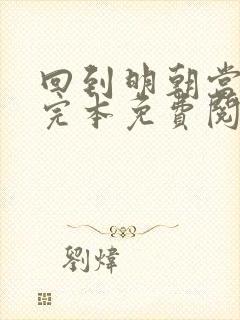 回到明朝當
完本免費閱
劉煒